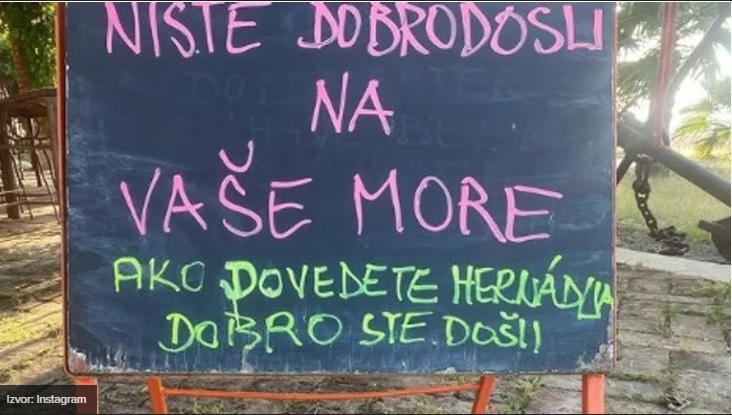 NISTE DOBRODOSLI
NA
VAŠE MORE
AKO DOVEDETE HERNÁDIJA
DOBRO STE DOŠLI
Izvor: Instagram